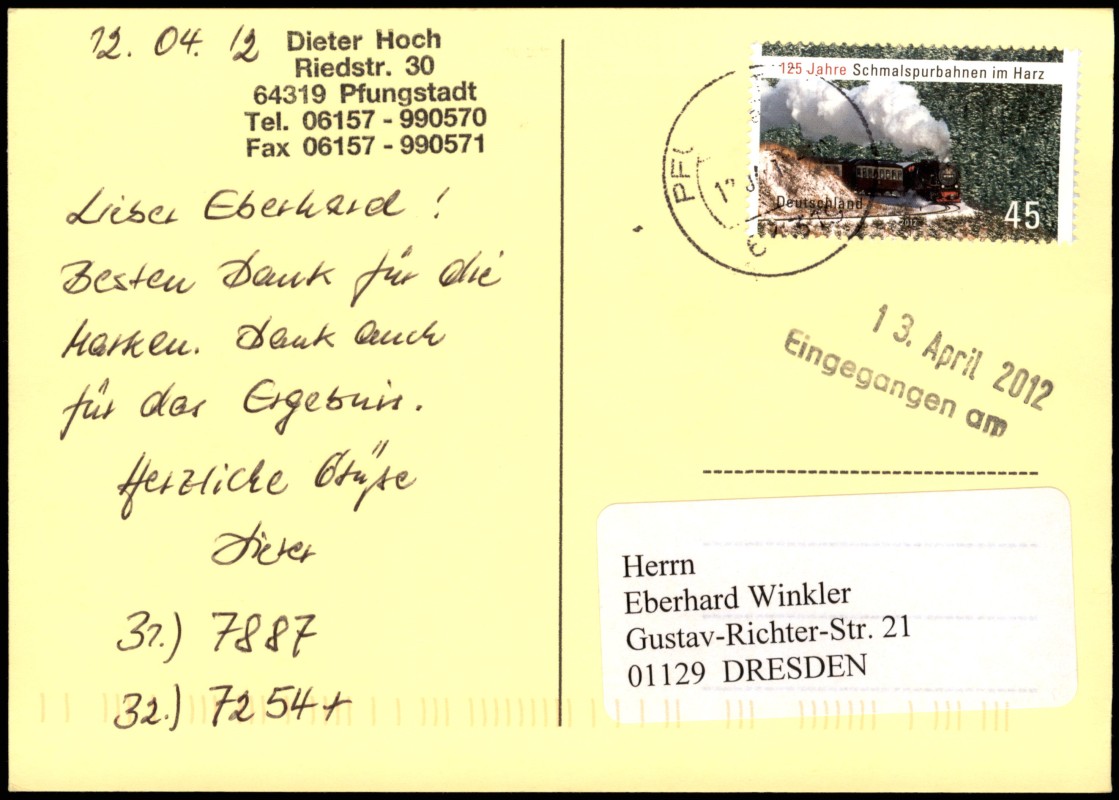 12. 04. 12
Dieter Hoch
Riedstr. 30
64319 Pfungstadt
Tel. 06157 - 990570
Fax 06157 - 990571
Lieber Eberhard !
Besten Dank für die
Marken. Dank auch
für das Ergebnis.
Herzliche Grüße
Dieter
31.) 7887
32.) 7254+
125 Jahre Schmalspurbahnen im Harz
Deutschland
45
13. April 2012
Eingegangen am
Herrn
Eberhard Winkler
Gustav-Richter-Str. 21
01129 DRESDEN